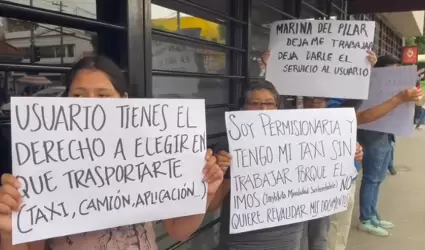 USUARIO TIENES EL
DERECHO A ELEGIR EN
QUE TRASPORTARTE
(TAXI, CAMIÓN, APLICACIÓN...)
SOY PERMISIONARIA Y
TENGO MI TAXI SIN
TRABAJAR PORQUE EL
IMOS (Instituto Movilidad Sustentable) NO
QUIERE REVALIDAR MIS DOCUMENTOS
MARINA DEL PILAR
DEJA ME TRABAJAR
DEJA DARLE EL
SERVICIO AL USUARIO